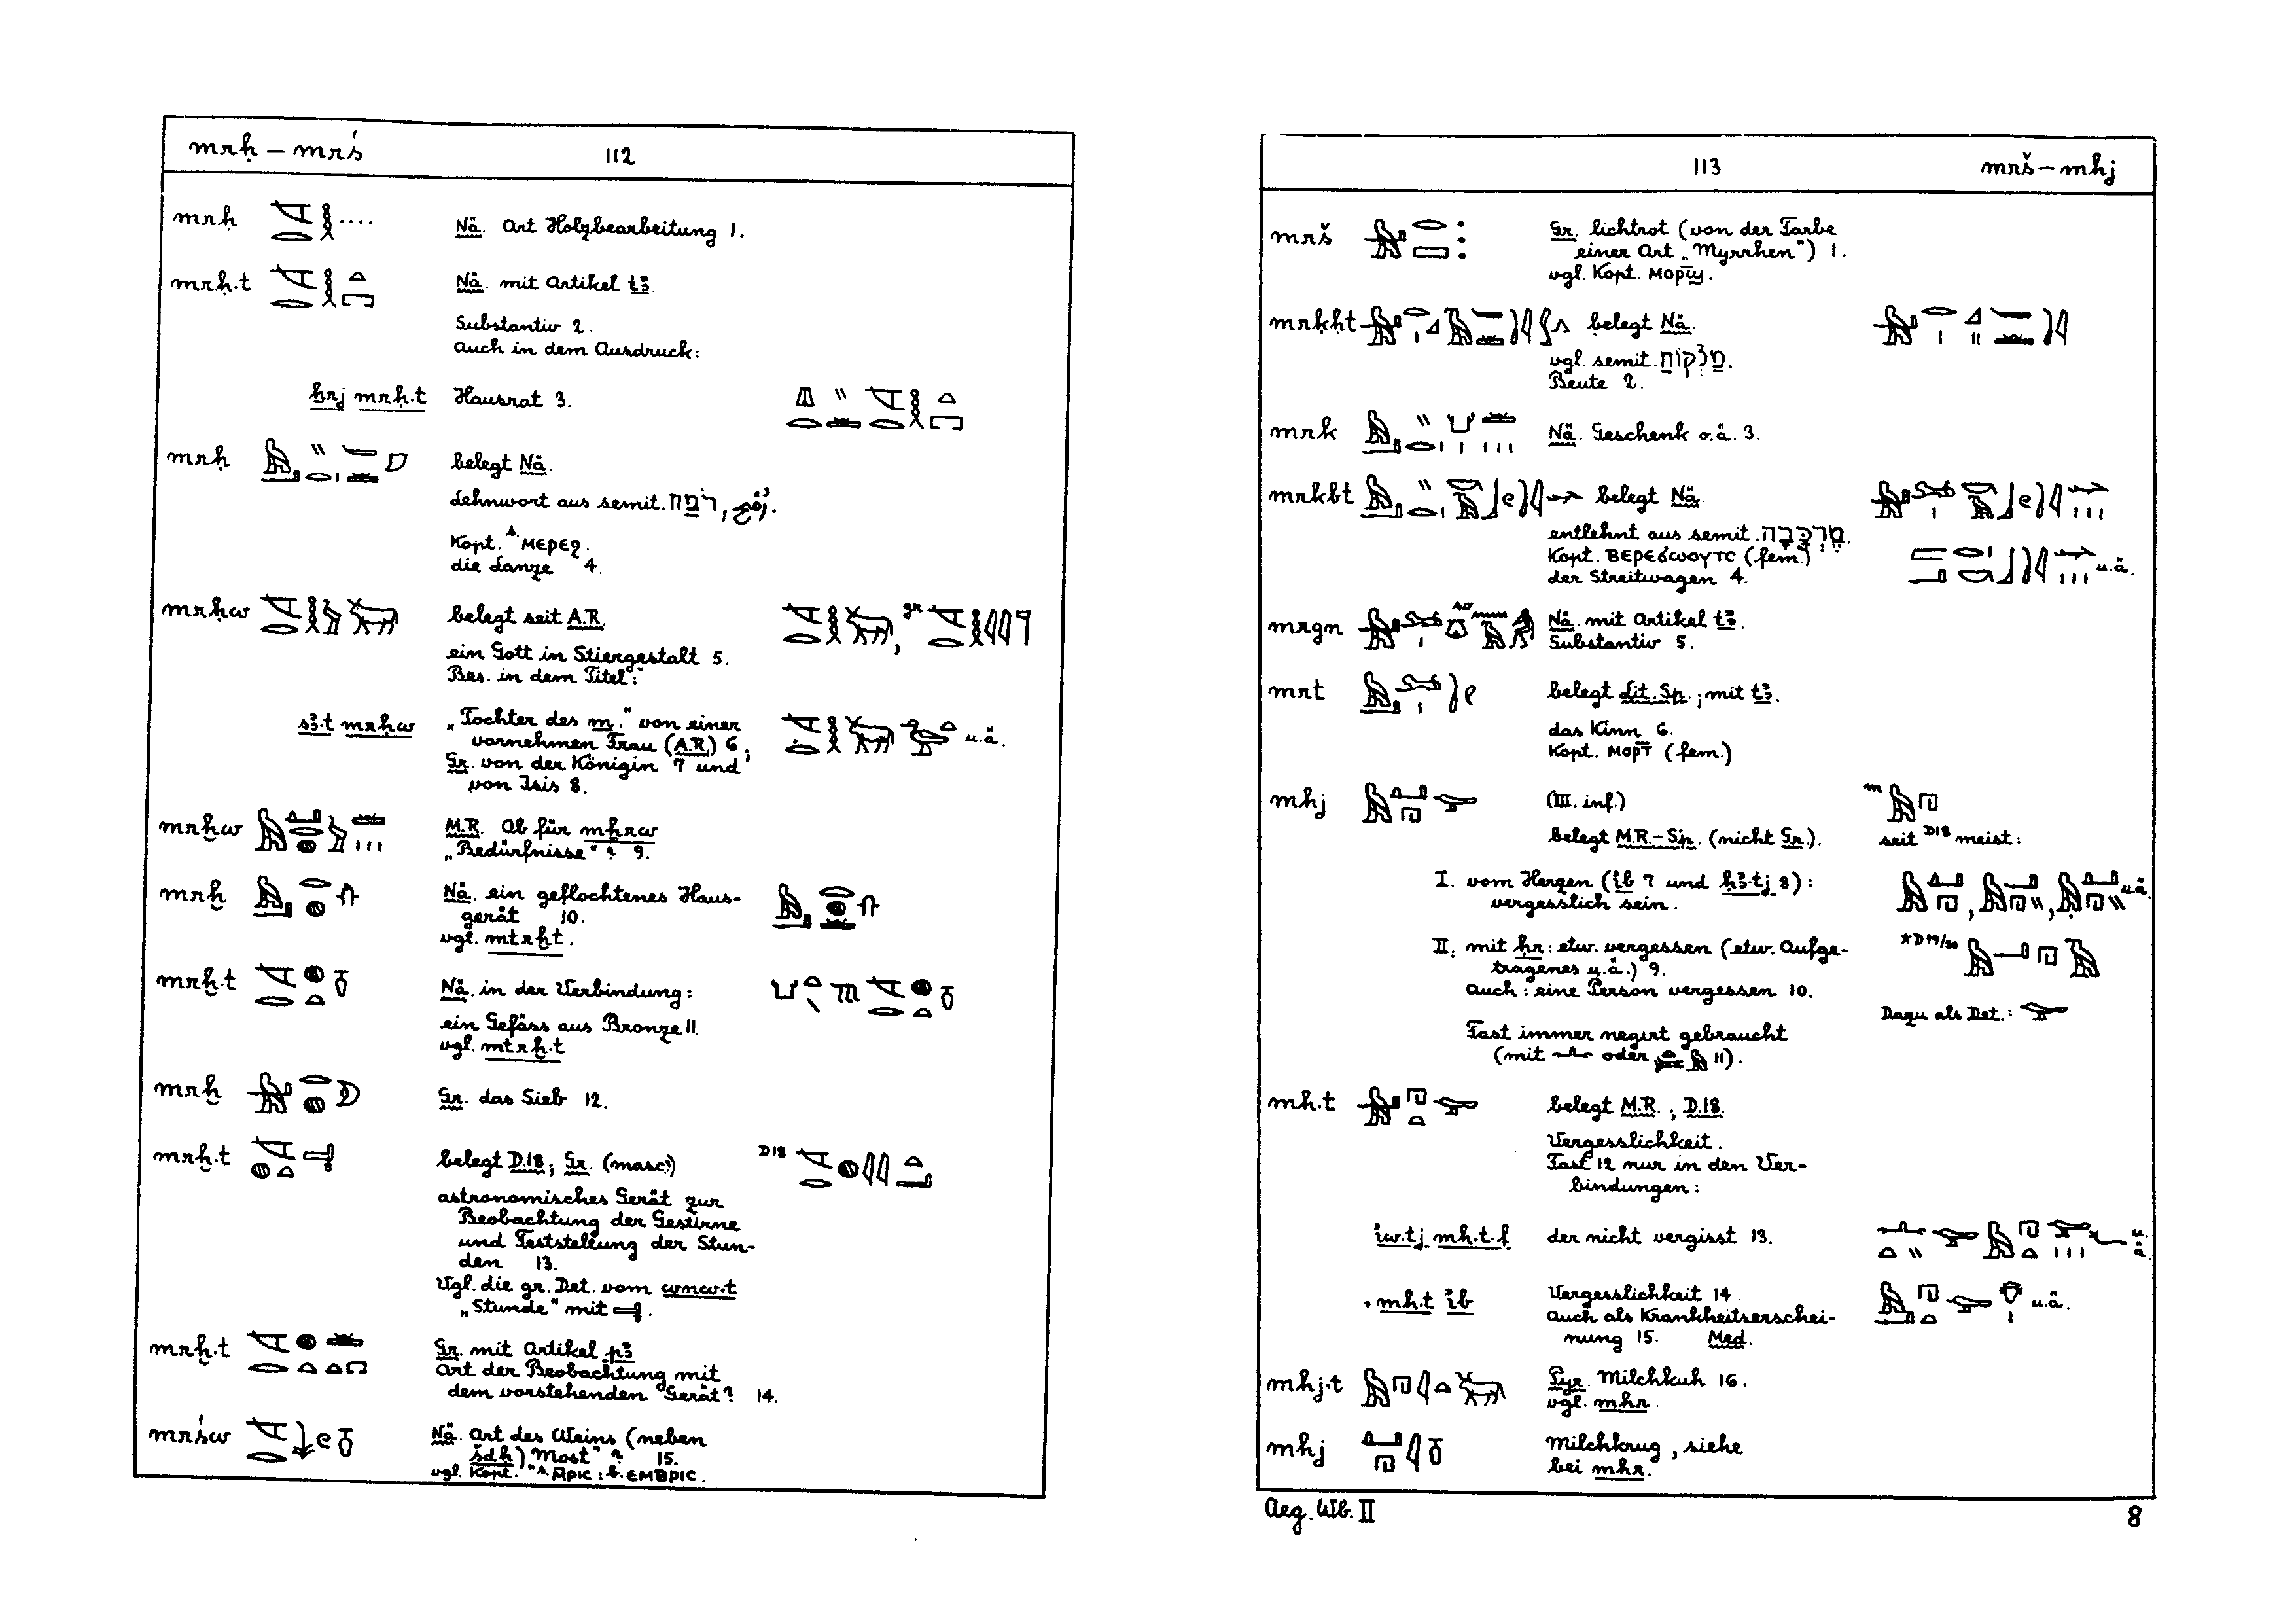 mrḥ – mrś 112
mrḥ Nä. Art Holzbearbeitung 1.
mrḥ.t Nä. mit Artikel tꜣ.
Substantiv 2.
auch in dem Ausdruck:
ẖrj mrḥ.t Hausrat 3.
mrḥ belegt Nä.
Lehnwort aus semit.
Kopt. s. ⲙⲉⲣⲉϩ.
die Lanze 4.
mrḥw belegt seit A.R. gr
ein Gott in Stiergestalt 5.
Bes. in dem Titel:
sꜣ.t mrḥw „Tochter des m.“ von einer u.ä.
vornehmen Frau (A.R.) 6;
Gr. von der Königin 7 und
von Isis 8.
mrḫw M.R. Ob für mḫrw
„Bedürfnisse“? 9.
mrḫ Nä. ein geflochtenes Haus-
gerät 10.
vgl. mtrḫt.
mrḫ.t Nä. in der Verbindung:
ein Gefäss aus Bronze 11.
vgl. mtrḫ.t
mrḫ Gr. das Sieb 12.
mrḫ.t belegt D.18; Gr. (masc?) D18
astronomisches Gerät zur
Beobachtung der Gestirne
und Feststellung der Stun-
den 13.
Vgl. die gr. Det. vom wnw.t
„Stunde“ mit
mrḫ.t Gr. mit Artikel pꜣ
Art der Beobachtung mit
dem vorstehenden Gerät? 14.
mrśw Nä. Art des Weins (neben
šdḥ) „Most“? 15.
vgl. Kopt. s. ⲙ̄ⲣⲓⲥ : b. ⲉⲙⲃⲣⲓⲥ.
113 mrš – mhj
mrš Gr. lichtrot (von der Farbe
einer Art „Myrrhen“) 1.
vgl. Kopt. ⲙⲟⲣϣ.
mrḳḥt belegt Nä.
vgl. semit. מַלְקוֹחַ.
Beute 2.
mrk Nä. Geschenk o.ä. 3.
mrkbt belegt Nä.
entlehnt aus semit. מֶרְכָּבָה.
Kopt. ⲃⲉⲣⲉϭⲱⲟⲩⲧⲥ (fem.)
der Streitwagen 4. u.ä.
mrgn Nä. mit Artikel tꜣ.
Substantiv 5.
mrt belegt Lit. Sp.; mit tꜣ.
das Kinn 6.
Kopt. ⲙⲟⲣⲧ (fem.)
mhj (III. inf.) m
belegt M.R.–Sp. (nicht Gr.). seit D18 meist:
I. vom Herzen (ib 7 und ḥꜣ.tj 8): u.ä.
vergesslich sein.
II. mit ḥr: etw. vergessen (etw. Aufge- *D19/20
tragenes u.ä.) 9.
Auch: eine Person vergessen 10.
Dazu als Det.:
Fast immer negirt gebraucht
(mit oder 11).
mh.t belegt M.R.; D.18.
Vergesslichkeit.
Fast 12 nur in den Ver-
bindungen:
iw.tj mh.t.f der nicht vergisst 13. u. ä.
mh.t ib Vergesslichkeit 14 u.ä.
auch als Krankheitserschei-
nung 15. Med.
mhj.t Pyr. Milchkuh 16.
vgl. mhr.
mhj Milchkrug, siehe
bei mhr.
Aeg. Wb. II 8